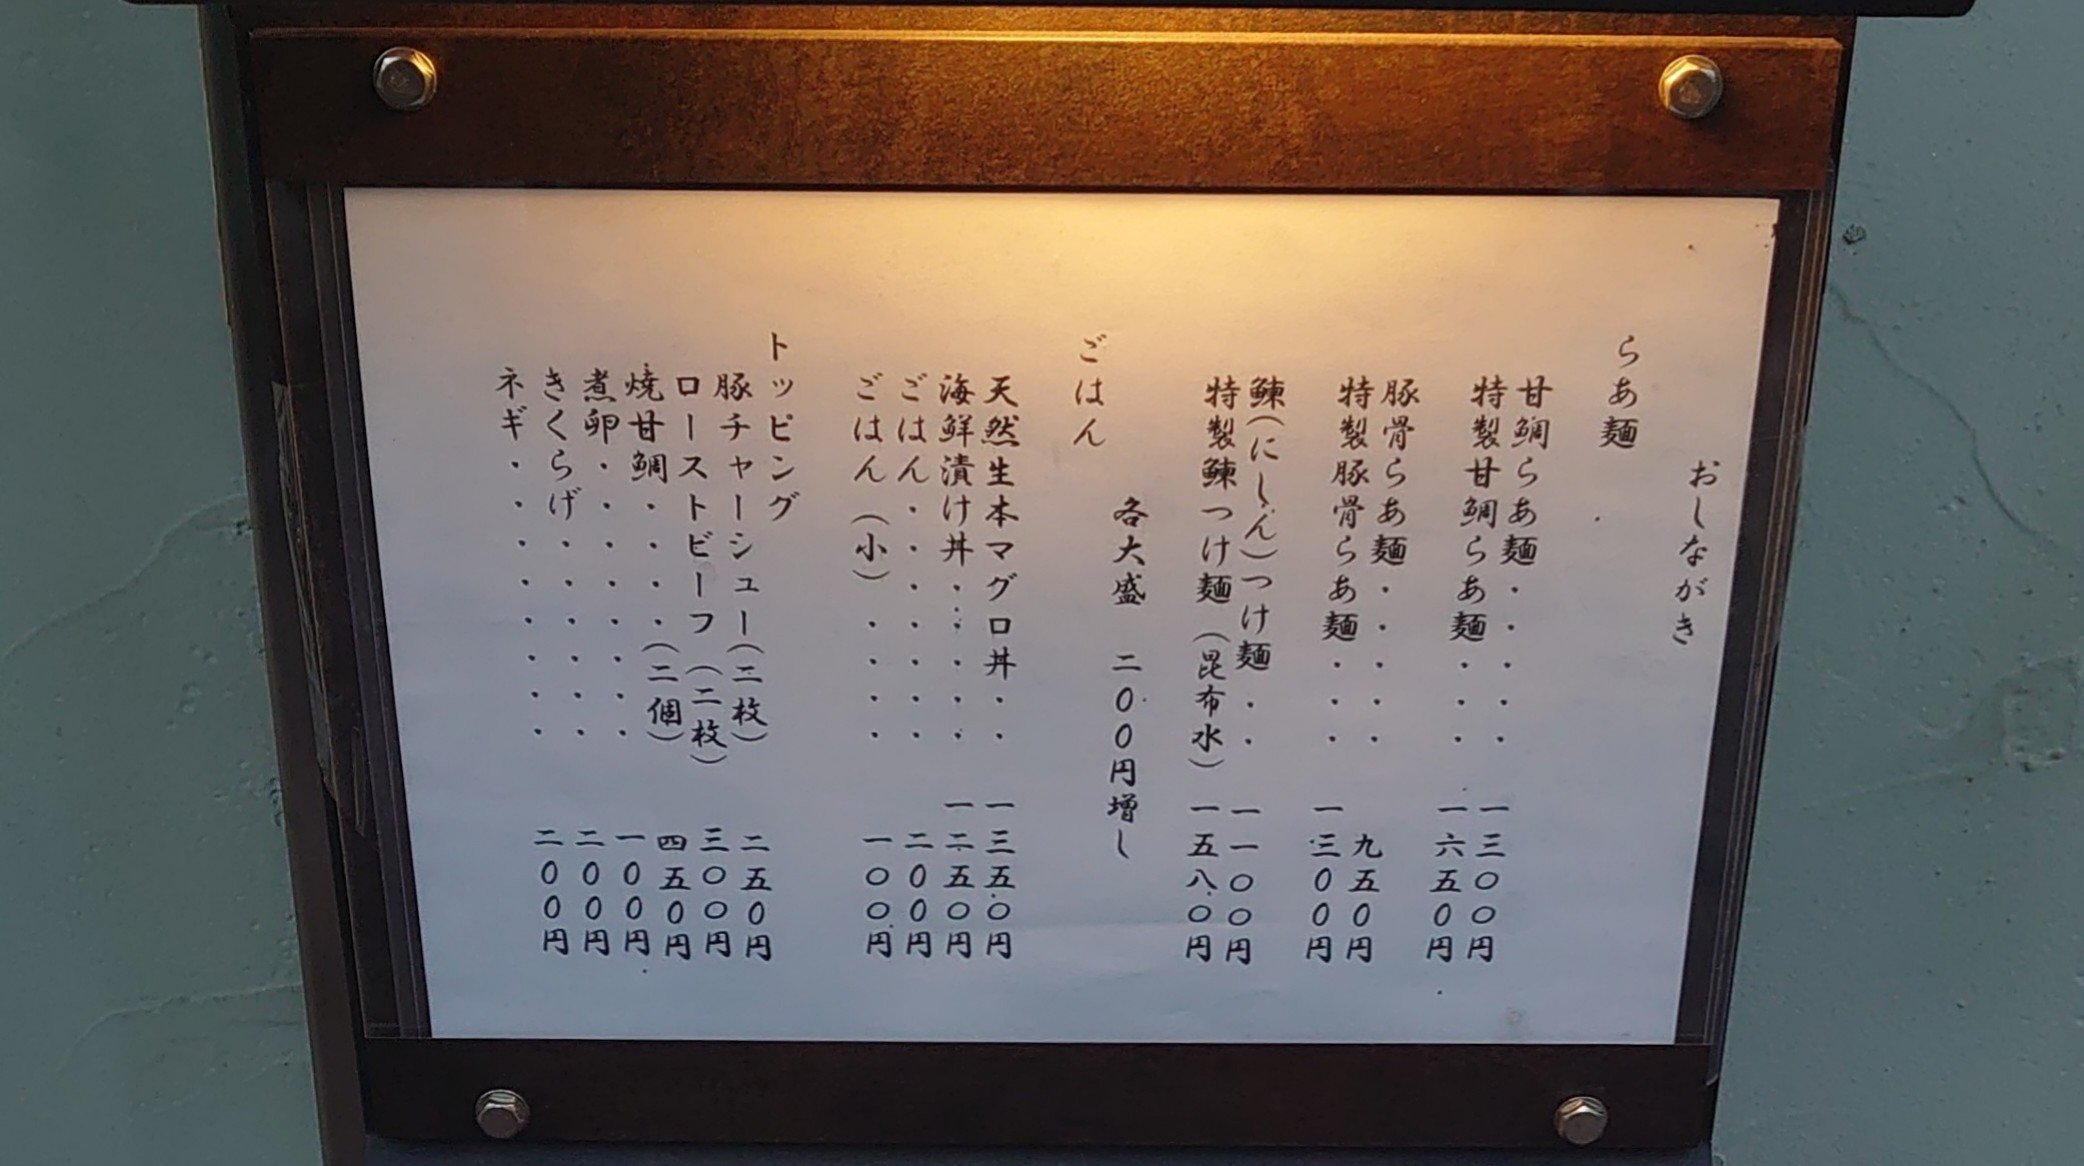 おしながき
らあ麺
甘鯛らあ麺・・・・・一三〇〇円
特製甘鯛らあ麺・・・一六五〇円
豚骨らあ麺・・・・・九五〇円
特製豚骨らあ麺・・・一三〇〇円
鰊(にしん)つけ麺・・一一〇〇円
特製鰊つけ麺(昆布水)一五八〇円
各大盛 二〇〇円増し
ごはん
天然生本マグロ丼・・一三五〇円
海鮮漬け丼・・・・・一二五〇円
ごはん・・・・・・・二〇〇円
ごはん(小)・・・・一〇〇円
トッピング
豚チャーシュー(二枚)二五〇円
ローストビーフ(二枚)三〇〇円
焼甘鯛・・・・(二個)四五〇円
煮卵・・・・・・・・一〇〇円
きくらげ・・・・・・二〇〇円
ネギ・・・・・・・・二〇〇円